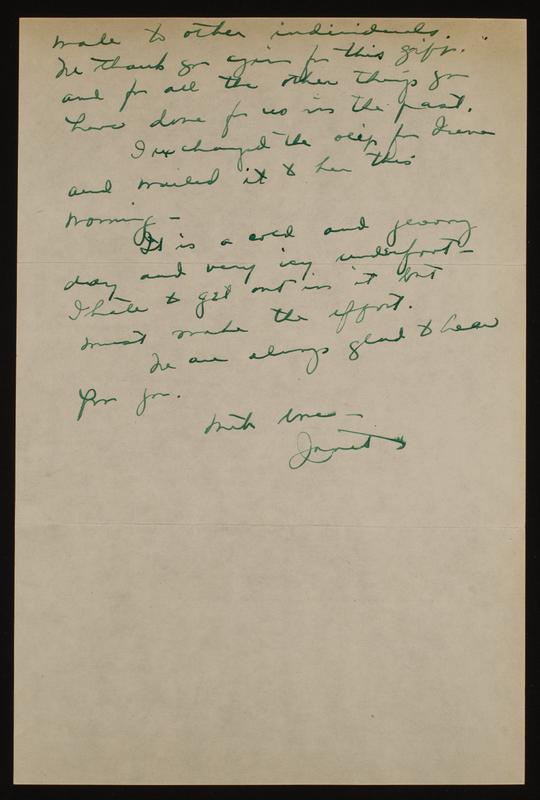 made to other individuals.
We thank you again for this gift.
and for all the other things you
have done for us in the past.
I exchanged the slip for Irene
and mailed it to her this
morning —
It is a cold and gloomy
day and very icy underfoot —
I hate to get out in it but
must make the effort.
We are always glad to hear
from you.
With love —
Janet